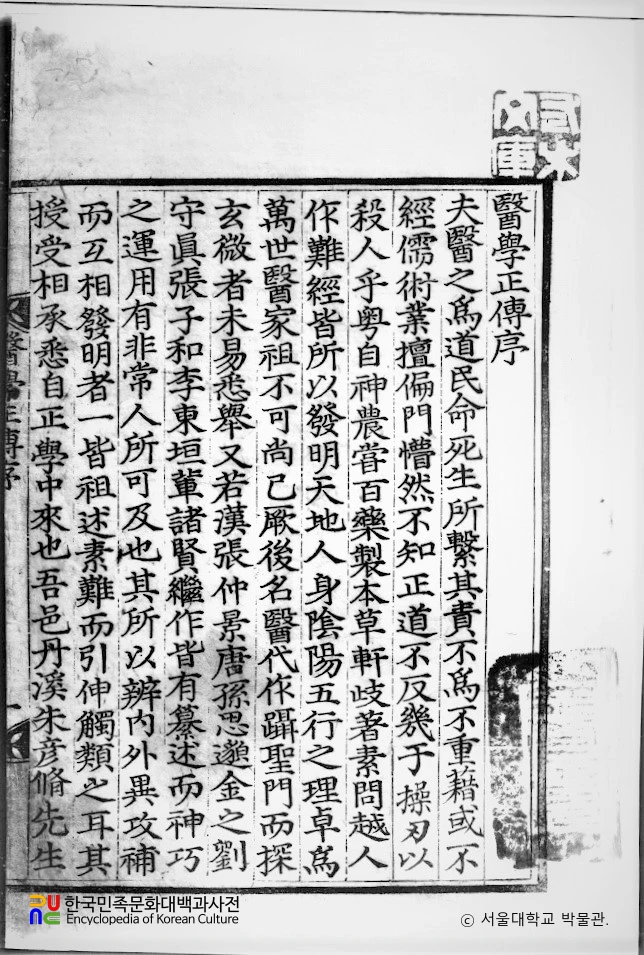 醫學正傳序
夫醫之爲道民命死生所繫其責不爲不重藉或不
經儒術業擅偏門懵然不知正道不反幾于操刃以
殺人乎粤自神農甞百藥製本草軒岐著素問越人
作難經皆所以發明天地人身陰陽五行之理卓爲
萬世醫家祖不可尚已厥後名醫代作躡聖門而探
玄微者未易悉舉又若漢張仲景唐孫思邈金之劉
守眞張子和李東垣軰諸賢繼作皆有纂述而神巧
之運用有非常人所可及也其所以辨内外異攻補
而互相發明者一皆祖述素難而引伸觸類之耳其
授受相承悉自正學中來也吾邑丹溪朱彦脩先生
醫學正傳序
한국민족문화대백과사전
Encyclopedia of Korean Culture
ⓒ 서울대학교 박물관.